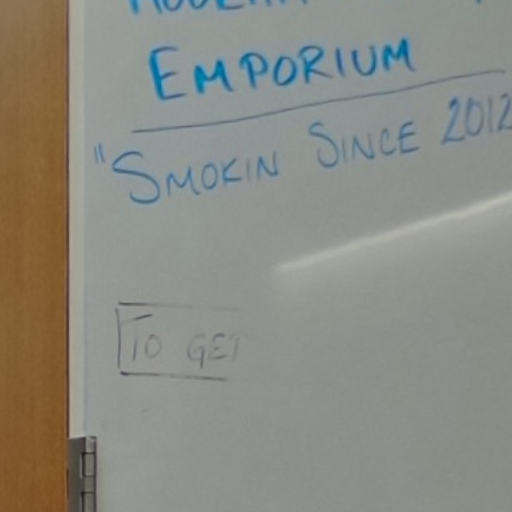 EMPORIUM
"SMOKIN SINCE 2012
TO GET